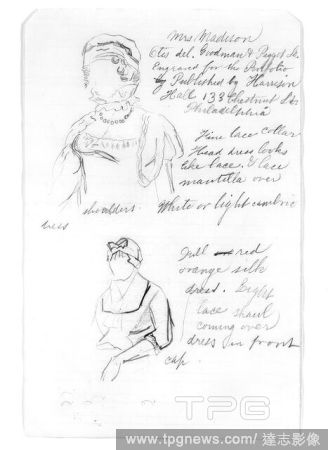 Mrs. Madison
Otis del. Goodman & Piggot Sc.
Engraved for the Portfolio
by Published by Harrison
Hall 133 Chestnut St.
Philadelphia
Fine lace collar
Head dress looks
like lace. Lace
mantilla over
shoulders. White or light cambric
dress
Dull red
orange silk
dress. Light
lace shawl
coming over
dress in front
cap.
TPG
www.tpgnews.com/ 達志影像